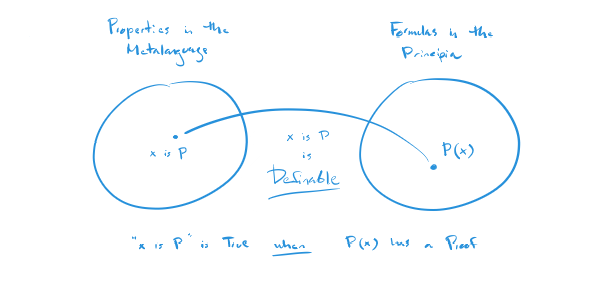 Properties in the
Metalanguage
Formulas in the
Principia
x is P
x is P
is
Definable
P(x)
"x is P" is True when P(x) has a Proof